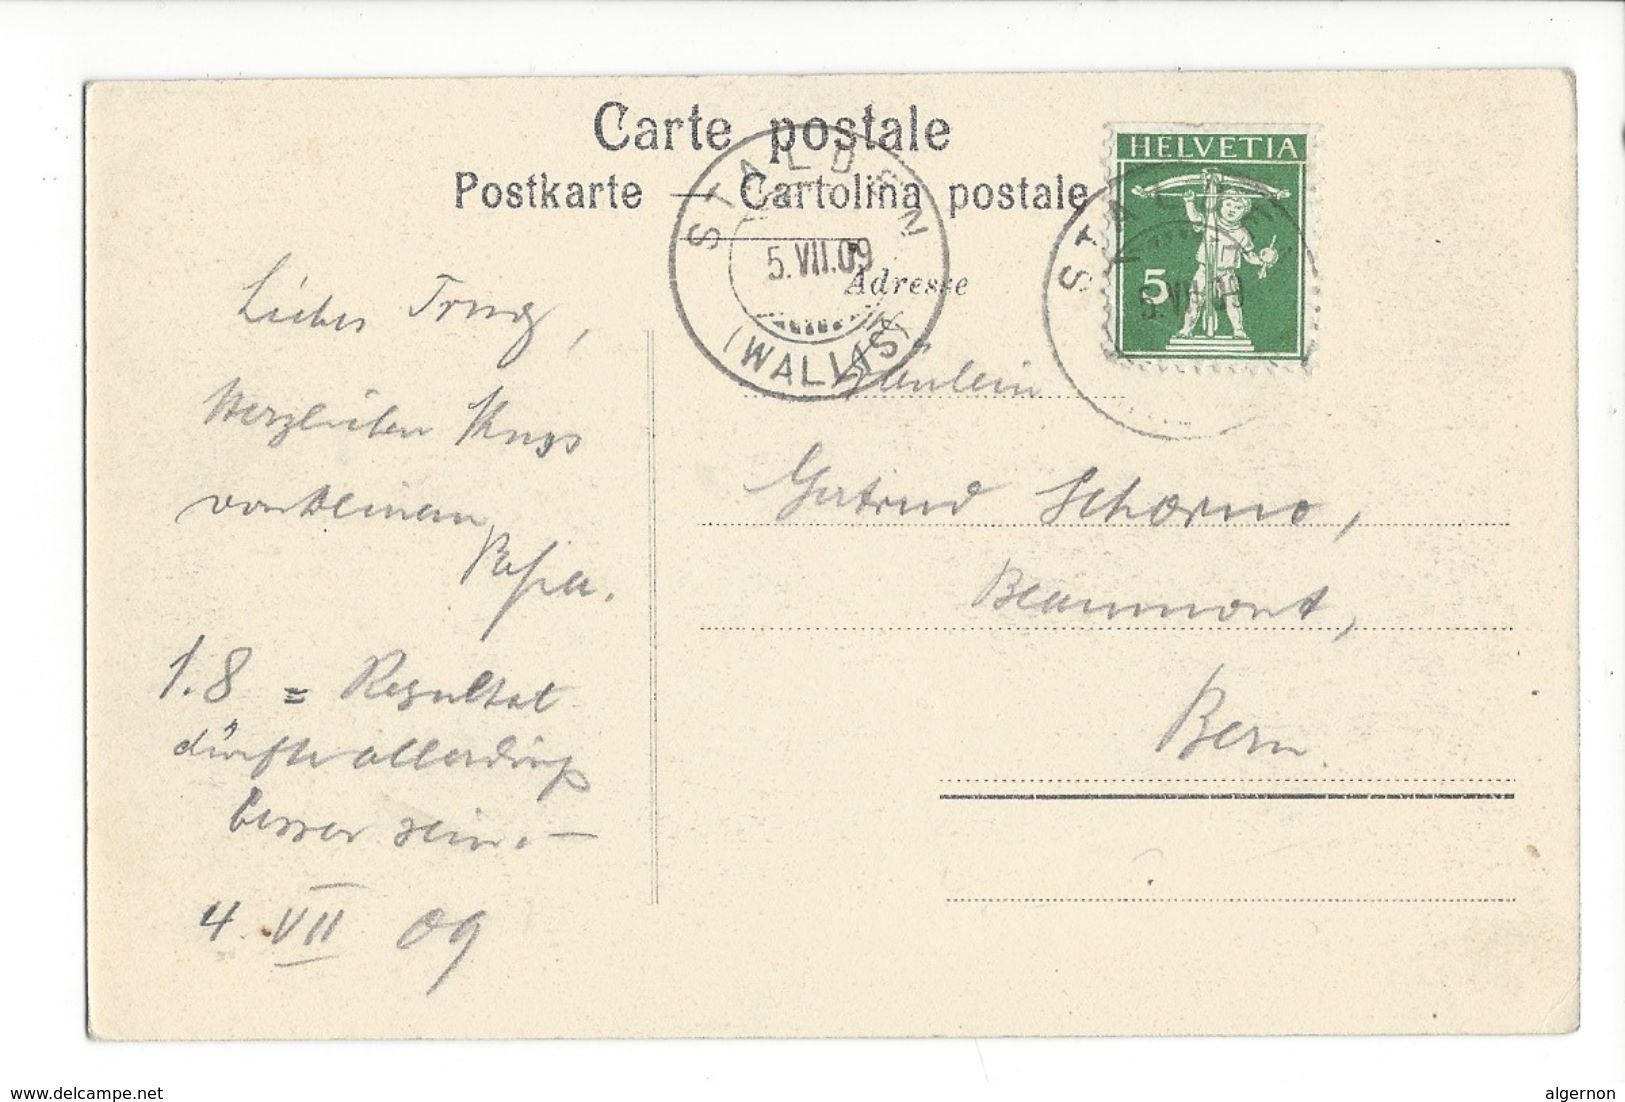 Carte postale
Postkarte — Cartolina postale
Adresse
STALDEN
5.VII.09
(WALLIS)
HELVETIA
5
STALDEN
5.VII.09
Liebes
Herzlichen Kuss
von Deinem
Papa.
1.8 = Resultat
dürfte allerdings
besser sein. —
4. VII 09
Fräulein
Gertrud Schorno,
Beaumont,
Bern.
www.delcampe.net
algernon